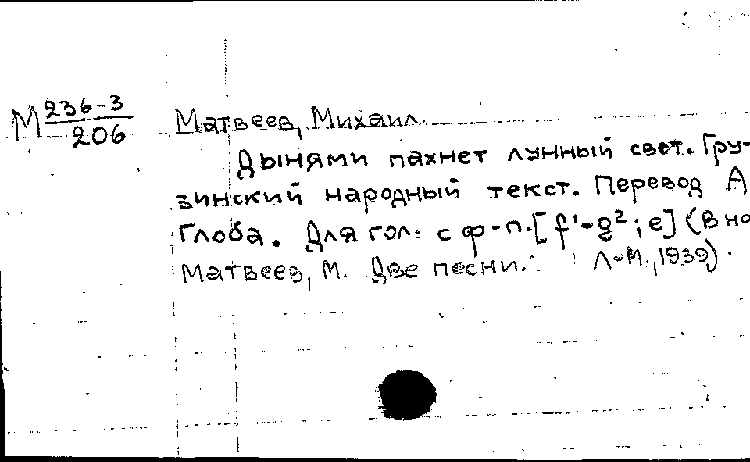 М 236-3/206 Матвеев, Михаил.
Дынями пахнет лунный свет. Гру-
зинский народный текст. Перевод А
Глоба. Для гол. с ф-п. [f¹-g²; e] (В но
Матвеев, М. Две песни. Л-М., 1939).